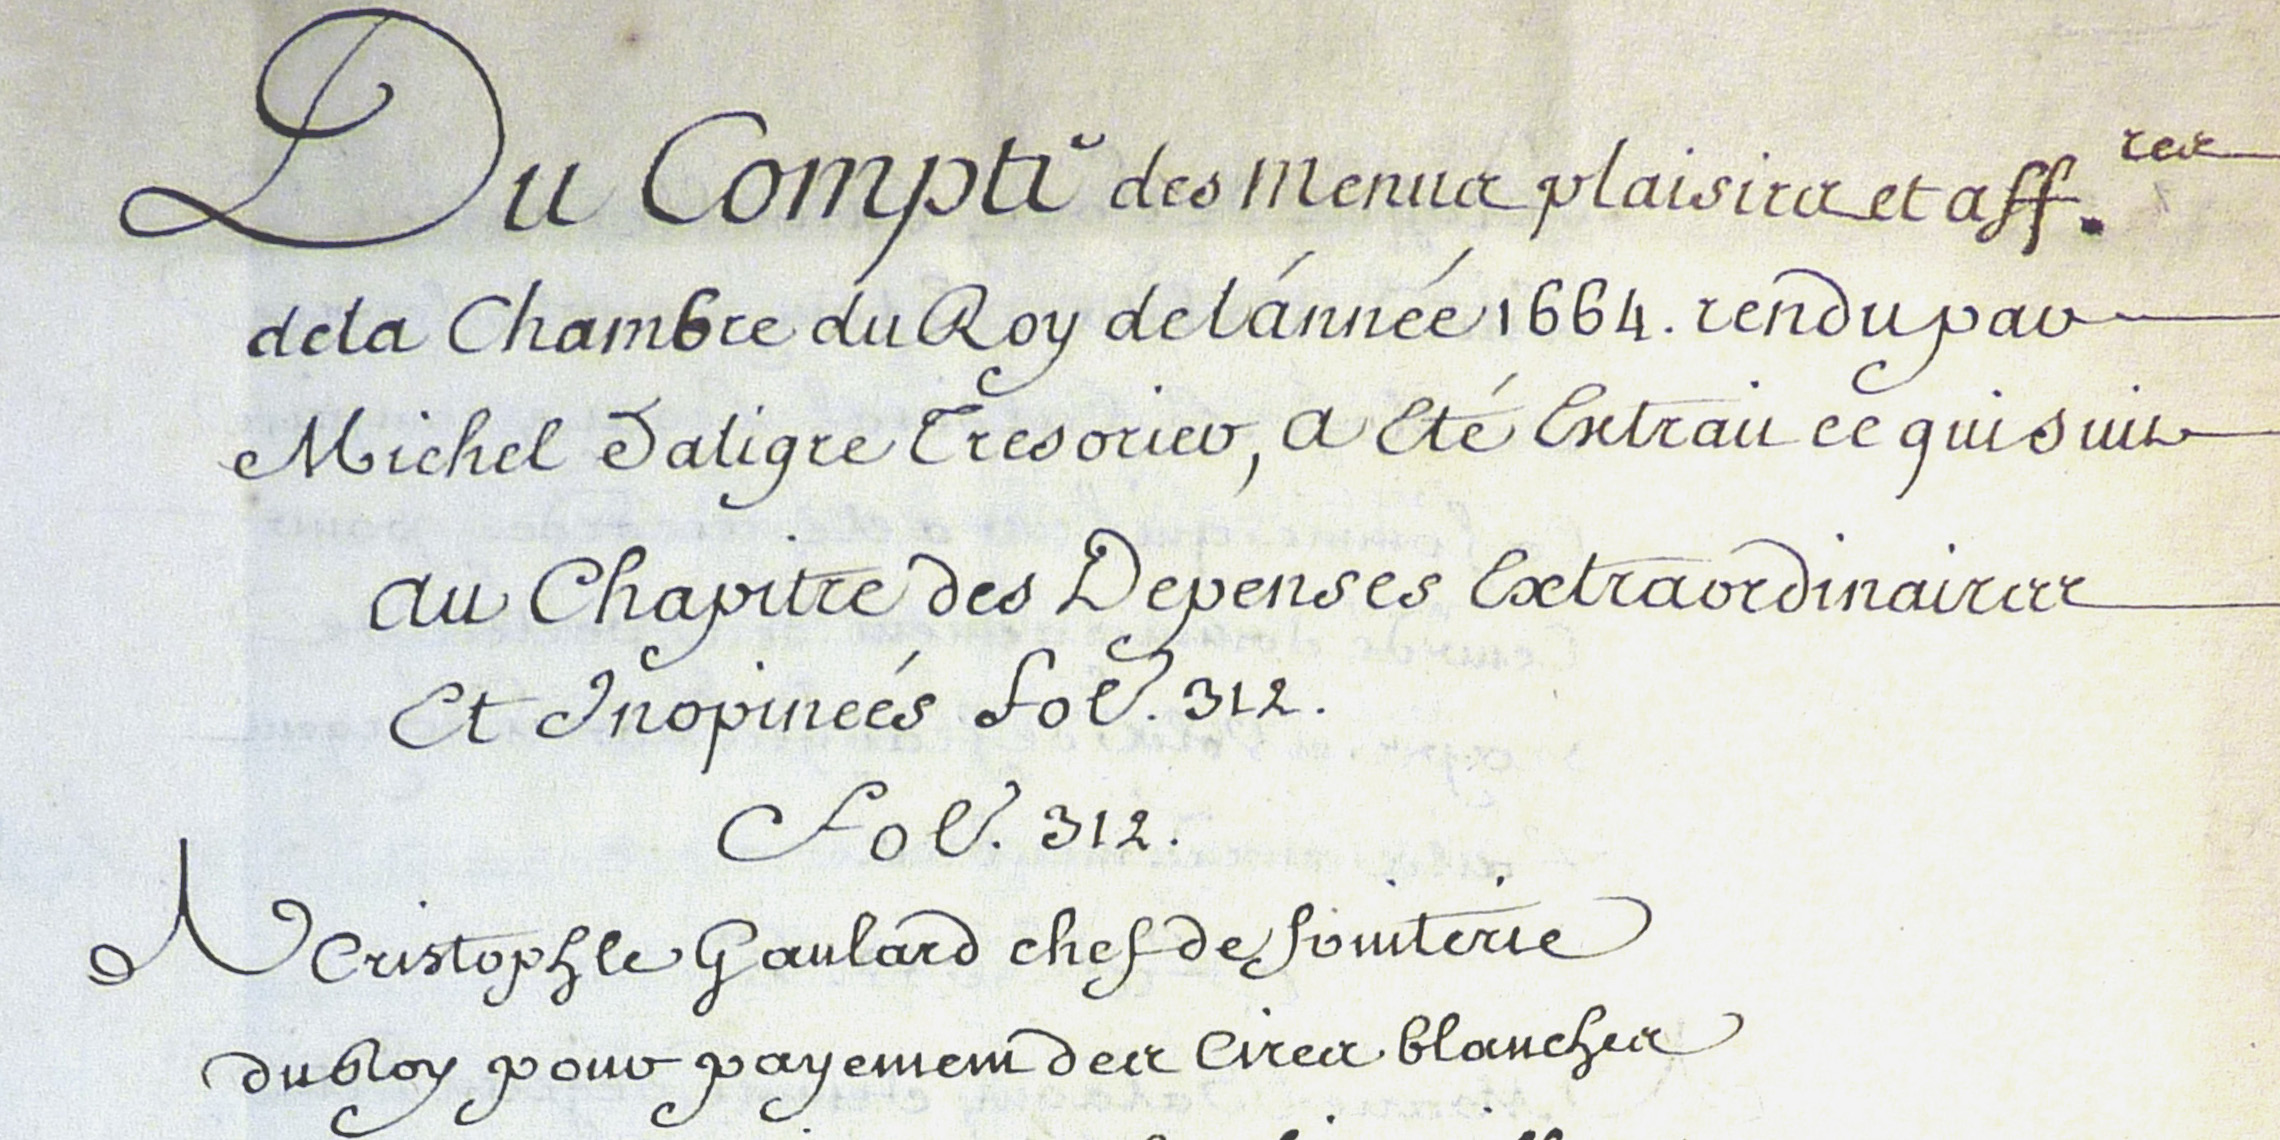 Du Compte des Menus plaisirs et aff.res
de la Chambre du Roy de l'année 1664. rendu par
Michel Daligre Tresorier, a Eté Extrait ce qui suit
au Chapitre des Depenses Extraordinaires
Et Inopineés fol. 312.
Fol. 312.
A Cristophle Gaulard chef de fruiterie
du Roy pour payement des Cires blanches